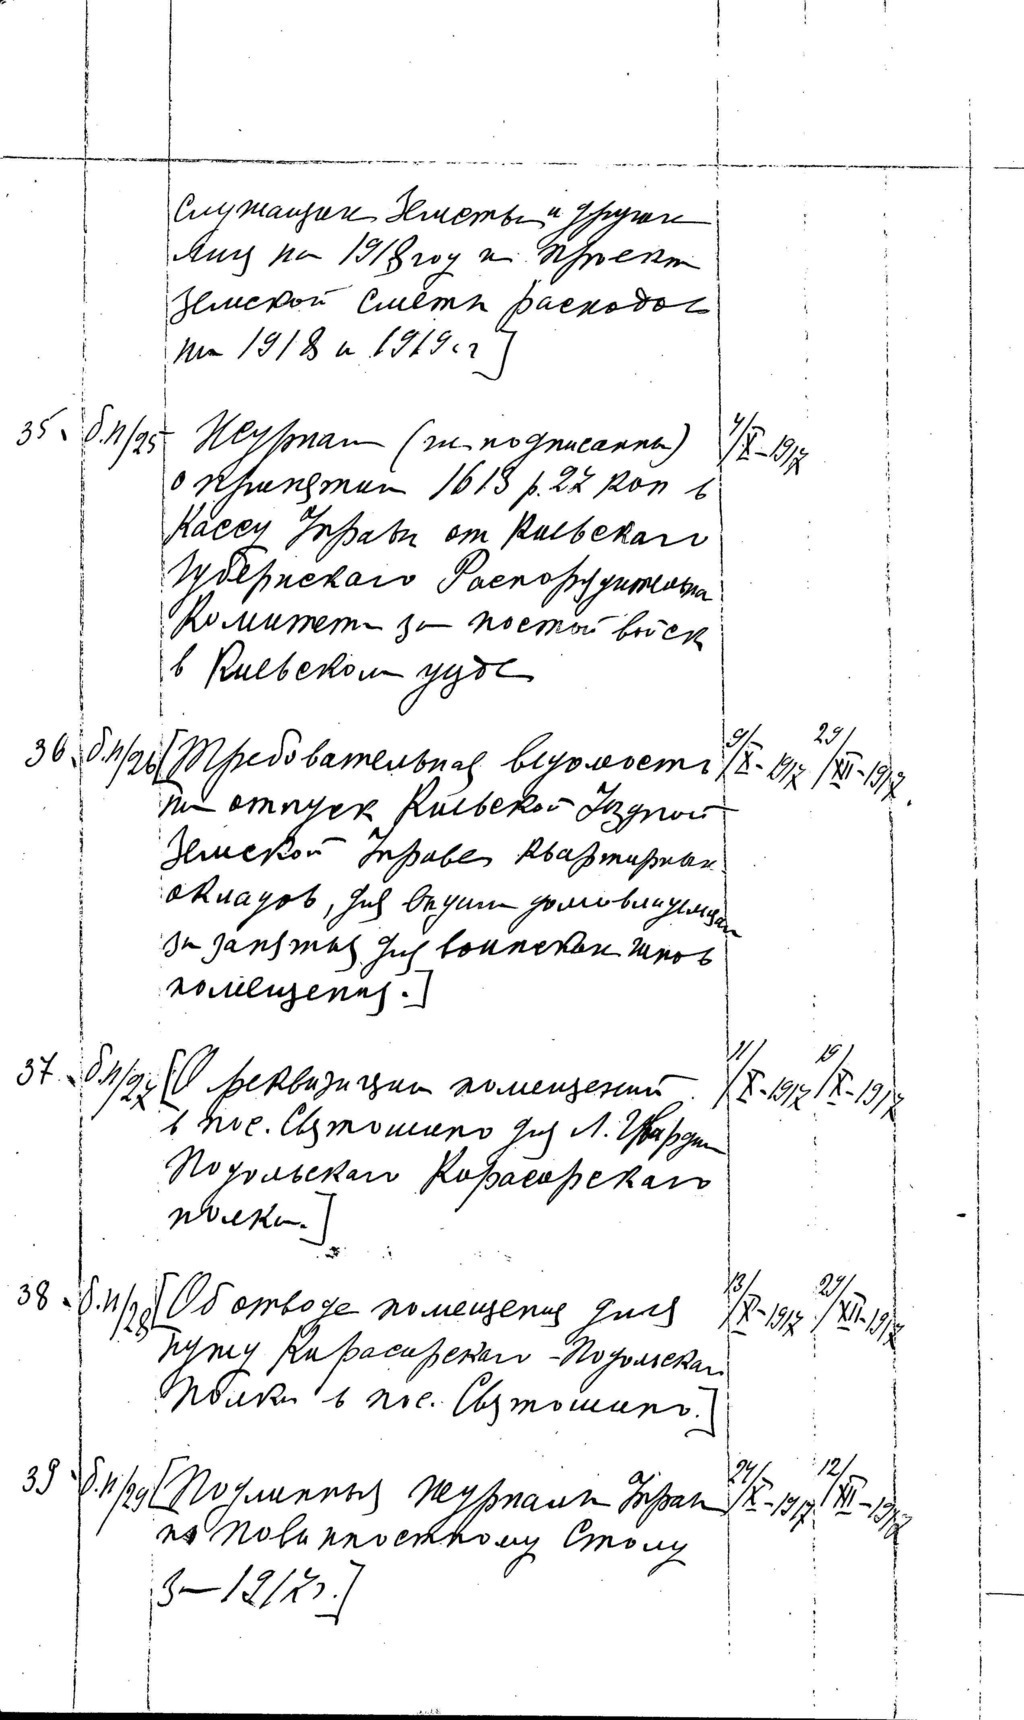 служащих Земства и других
лиц на 1918 год и проект
Земской сметы расходов
на 1918 и 1919 г.]
35. б.н/25 Журнал (не подписанный) 4/X-1917
о принятии 1613 р. 27 коп в
Кассу Управы от Киевского
Губернского Распорядительна
Комитета за постой войск
в Киевском уезде
36. б.н/26 [Требовательная ведомость 9/X-1917 29/XII-1917.
на отпуск Киевской Уездной
Земской Управе квартирных
окладов, для выдачи домовладельцам
за занятыя для воинских чинов
помещения.]
37. б.н/27 [О реквизиции помещений 11/X-1917 19/X-1917
в пос. Святошино для Л. Гвардии
Подольскаго Кирасирскаго
полка.]
38. б.н/28 [Об отводе помещения для 13/X-1917 29/XII-1917
нужд Кирасирскаго-Подольскаго
полка в пос. Святошино.]
39. б.н/29 [Подлинныя журналы Управы 24/X-1917 12/XII-1917
по повинностному Столу
за 1917 г.]